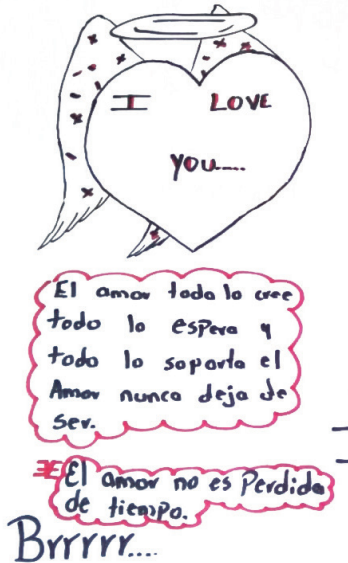 I LOVE
YOU.....
El amor todo lo cree
todo lo espera y
todo lo soporta el
Amor nunca deja de
ser.
El amor no es Perdida
de tiempo.
Brrrrr....